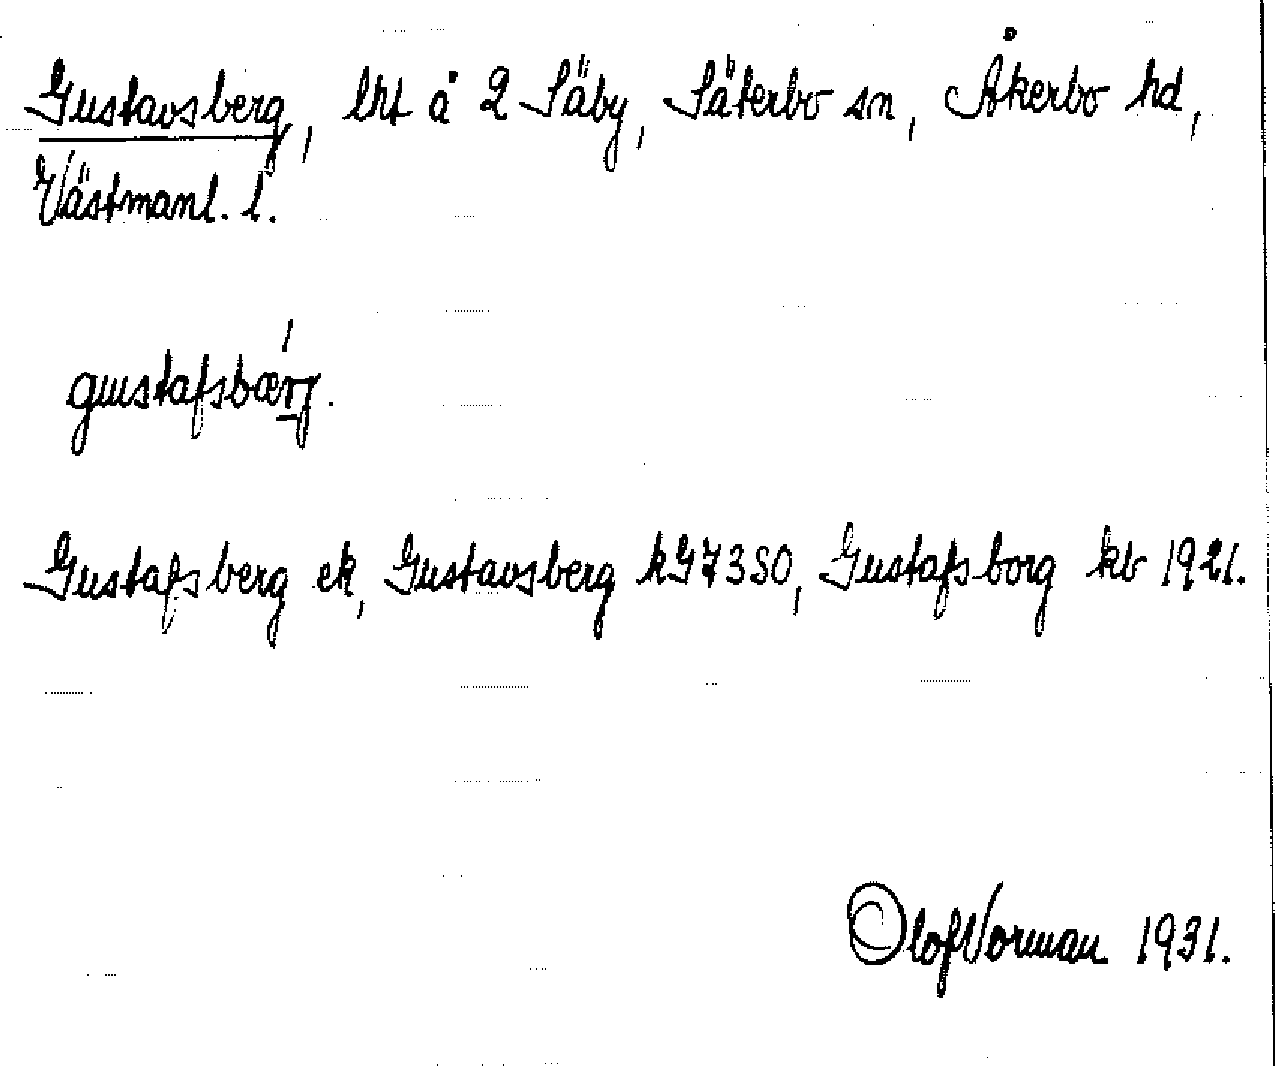 Gustavsberg, lht å 2 Säby, Säterbo sn, Åkerbo hd,
Västmanl. l.
gustafsbærj.
Gustafsberg ek, Gustavsberg kG73SO, Gustafsborg kb 1921.
Olof Vorman 1931.